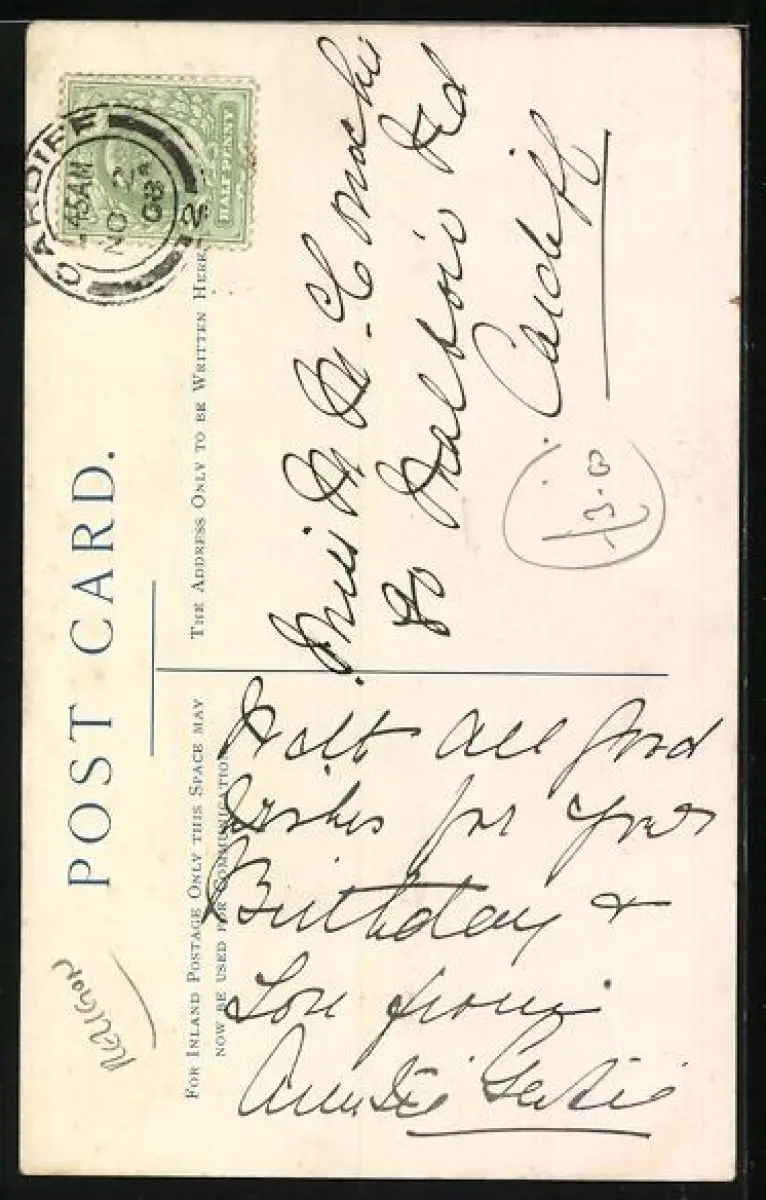 POST CARD.
FOR INLAND POSTAGE ONLY THIS SPACE MAY
NOW BE USED FOR COMMUNICATION
THE ADDRESS ONLY TO BE WRITTEN HERE
HALF PENNY
CARDIFF
45AM
NO 2
08
2
With all good
Wishes for your
Birthday &
Love from
Auntie Gertie
Miss M
Rd
Cardiff
RELIGION